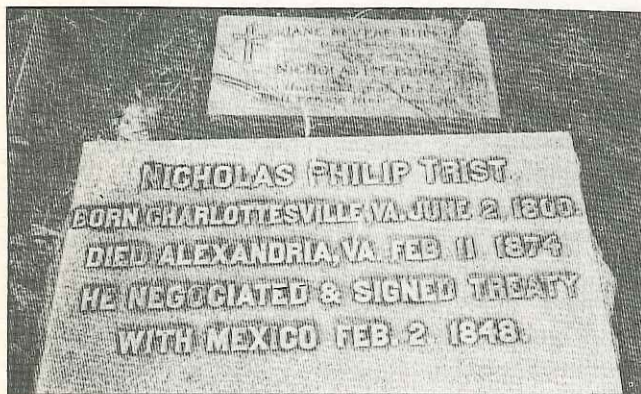 NICHOLAS
NICHOLAS PHILIP TRIST.
BORN CHARLOTTESVILLE, VA. JUNE 2. 1800.
DIED ALEXANDRIA, VA. FEB 11 1874
HE NEGOCIATED & SIGNED TREATY
WITH MEXICO FEB. 2. 1848.